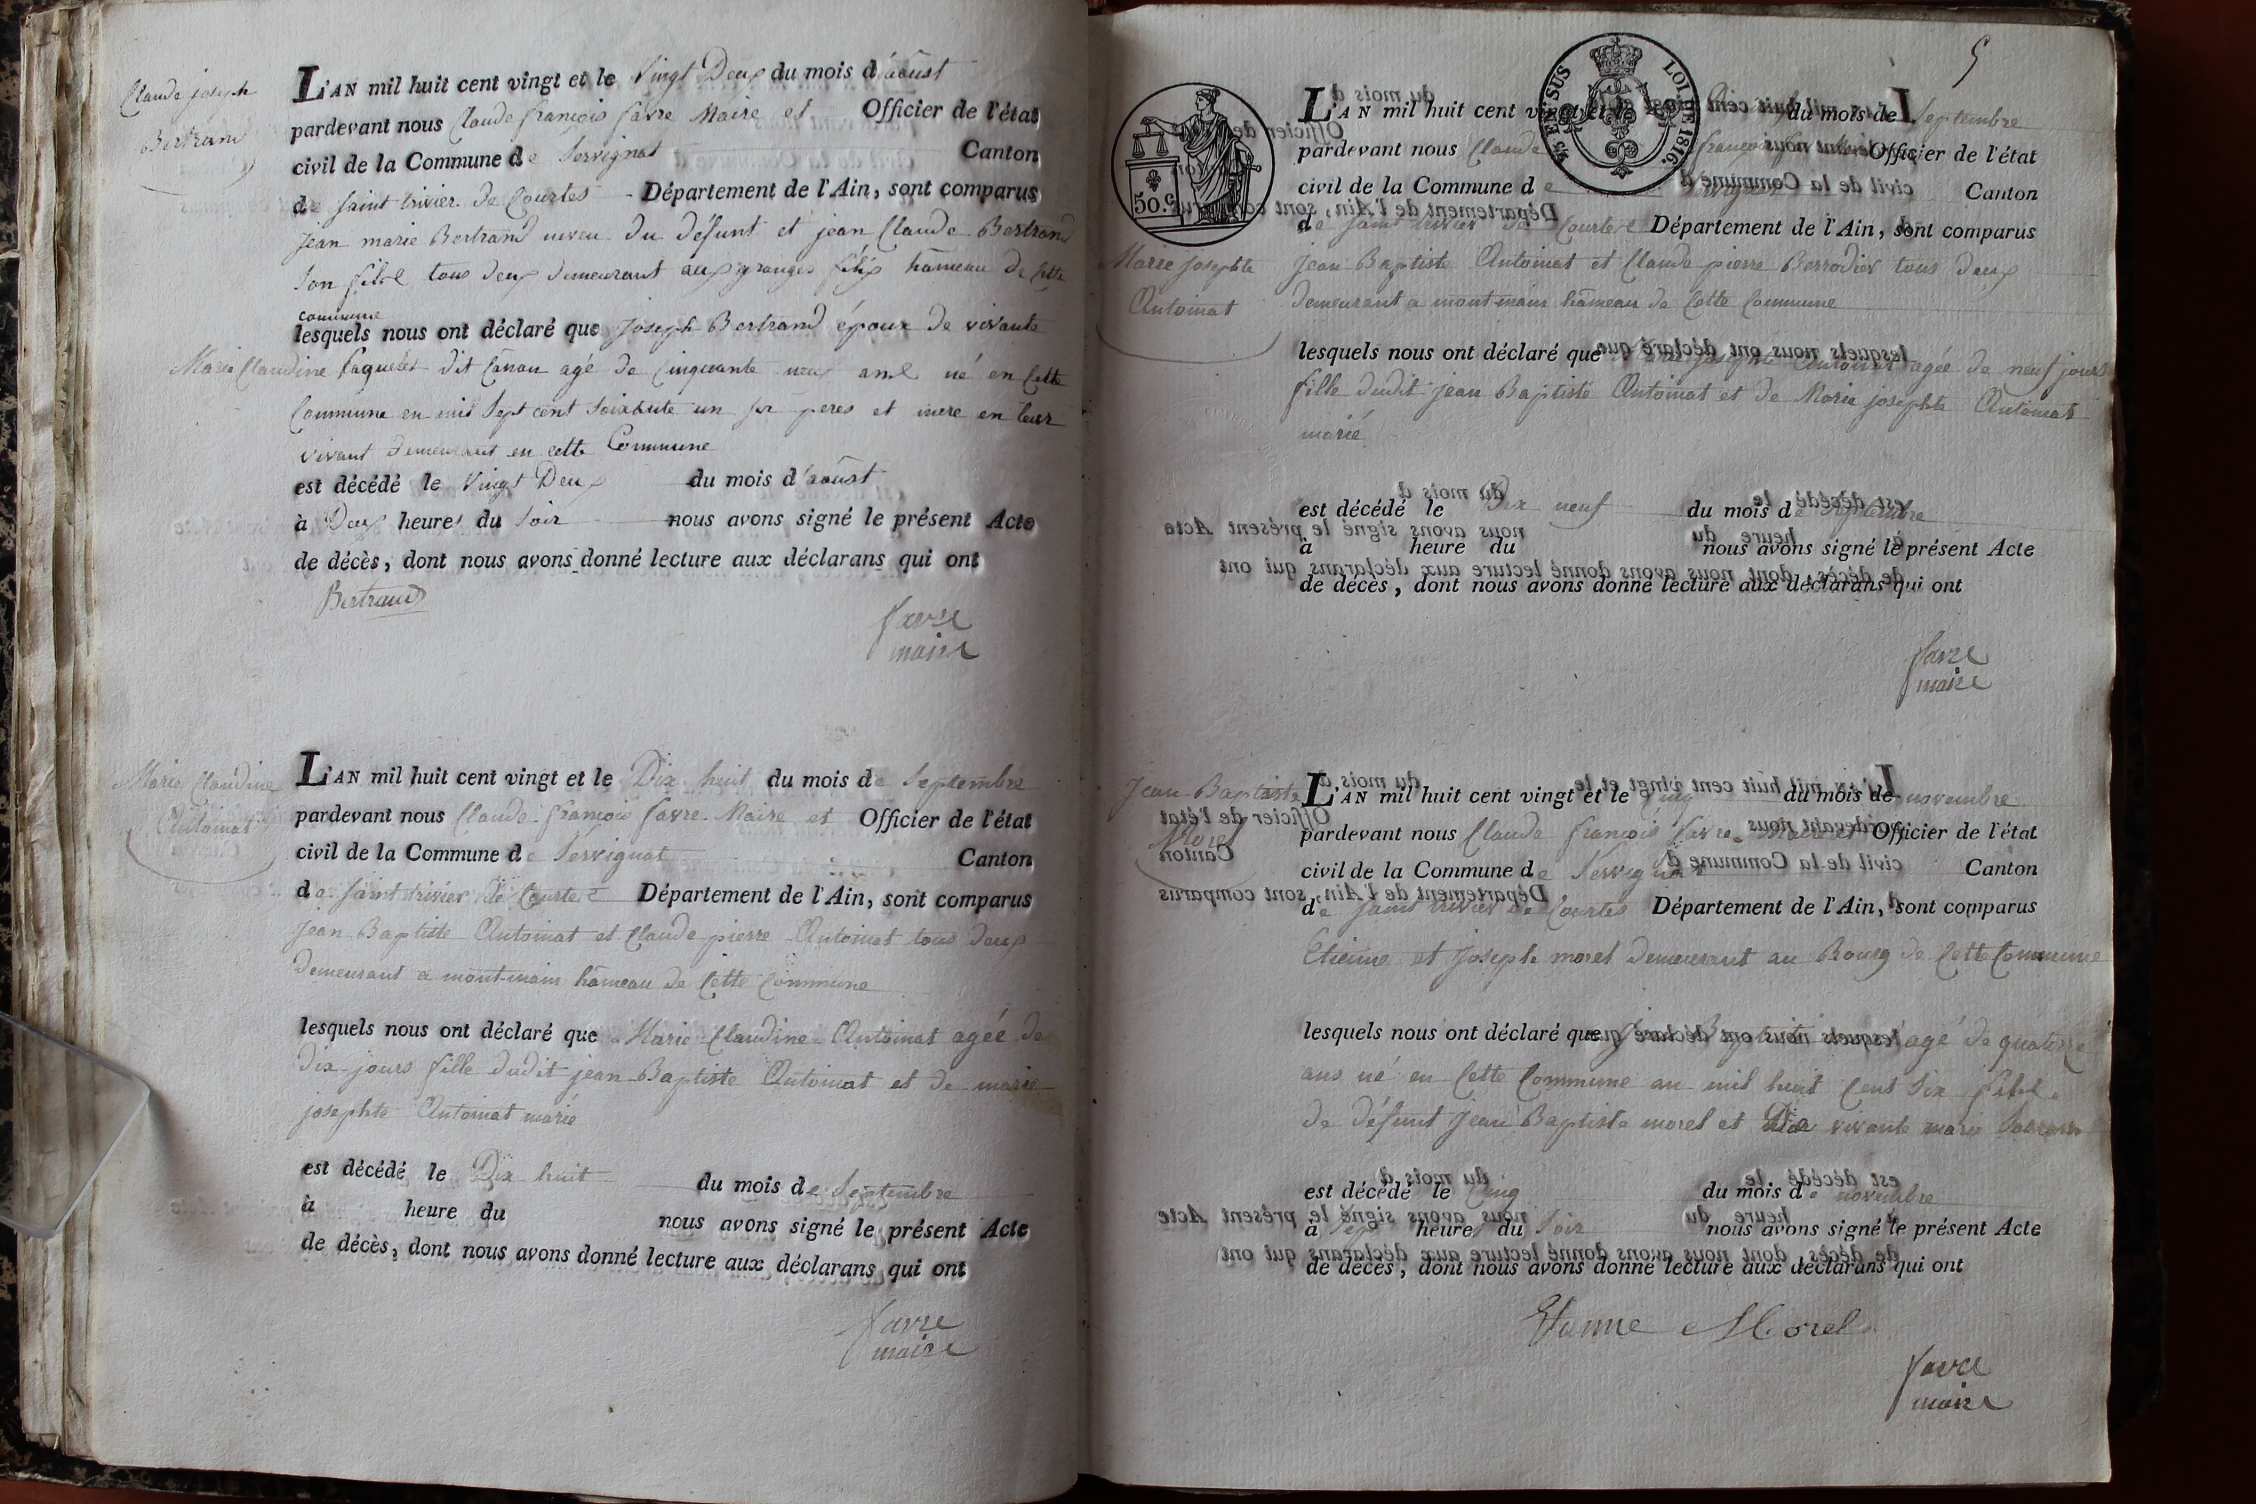 Claude joseph
Bertrand
L'AN mil huit cent vingt et le Vingt Deux du mois d'aoûst
pardevant nous Claude françois favre Maire et Officier de l'état
civil de la Commune de Servignat Canton
de Saint trivier De Courtes Département de l'Ain, sont comparus
jean marie Bertrand neveu du défunt et jean Claude Bertrand
Son fils tous deux demeurant aux granges hâmeau de cette
commune
lesquels nous ont déclaré que joseph Bertrand époux de vivante
Marie Claudine dit agé de Cinquante neuf ans né en Cette
Commune en mil Sept cent Soixante un peres et mere en leur
vivant demeurant en cette Commune
est décédé le Vingt Deux du mois d'aoûst
à Deux heures du Soir nous avons signé le présent Acte
de décès, dont nous avons donné lecture aux déclarans qui ont
Bertrand
favre
maire
Marie Claudine
Antoinat
L'AN mil huit cent vingt et le Dix huit du mois de Septembre
pardevant nous Claude françois favre Maire et Officier de l'état
civil de la Commune de Servignat Canton
de Saint trivier De Courtes Département de l'Ain, sont comparus
jean Baptiste Antoinat et Claude pierre Antoinat tous deux
demeurant a montmain hâmeau de Cette Commune
lesquels nous ont déclaré que Marie Claudine Antoinat agée de
dix jours fille dudit jean Baptiste Antoinat et de marie
josephte Antoinat marié
est décédé le Dix huit du mois de Septembre
à heure du nous avons signé le présent Acte
de décès, dont nous avons donné lecture aux déclarans qui ont
favre
maire
5
50.c
LOI DE 1816.
L'AN mil huit cent vingt et le du mois de Septembre
pardevant nous Claude françois Officier de l'état
civil de la Commune de Canton
de Saint trivier De Courtes Département de l'Ain, sont comparus
Marie josephte
Antoinat
jean Baptiste Antoinat et Claude pierre Berrodier tous deux
demeurant a montmain hâmeau de Cette Commune
lesquels nous ont déclaré que Antoinat agée de neuf jours
fille dudit jean Baptiste Antoinat et de Marie josephte Antoinat
marié
est décédé le Dix neuf du mois de Septembre
à heure du nous avons signé le présent Acte
de décès, dont nous avons donné lecture aux déclarans qui ont
favre
maire
Jean Baptiste
Morel
L'AN mil huit cent vingt et le Cinq du mois de novembre
pardevant nous Claude françois favre Officier de l'état
civil de la Commune de Servignat Canton
de Saint trivier De Courtes Département de l'Ain, sont comparus
Etienne et joseph morel demeurant au Bourg de Cette Commune
lesquels nous ont déclaré que agé de quatorze
ans né en Cette Commune an mil huit Cent Six fils
de défunt jean Baptiste morel et De vivante marie
est décédé le Cinq du mois de novembre
à Sept heures du Soir nous avons signé le présent Acte
de décès, dont nous avons donné lecture aux déclarans qui ont
Morel
favre
maire